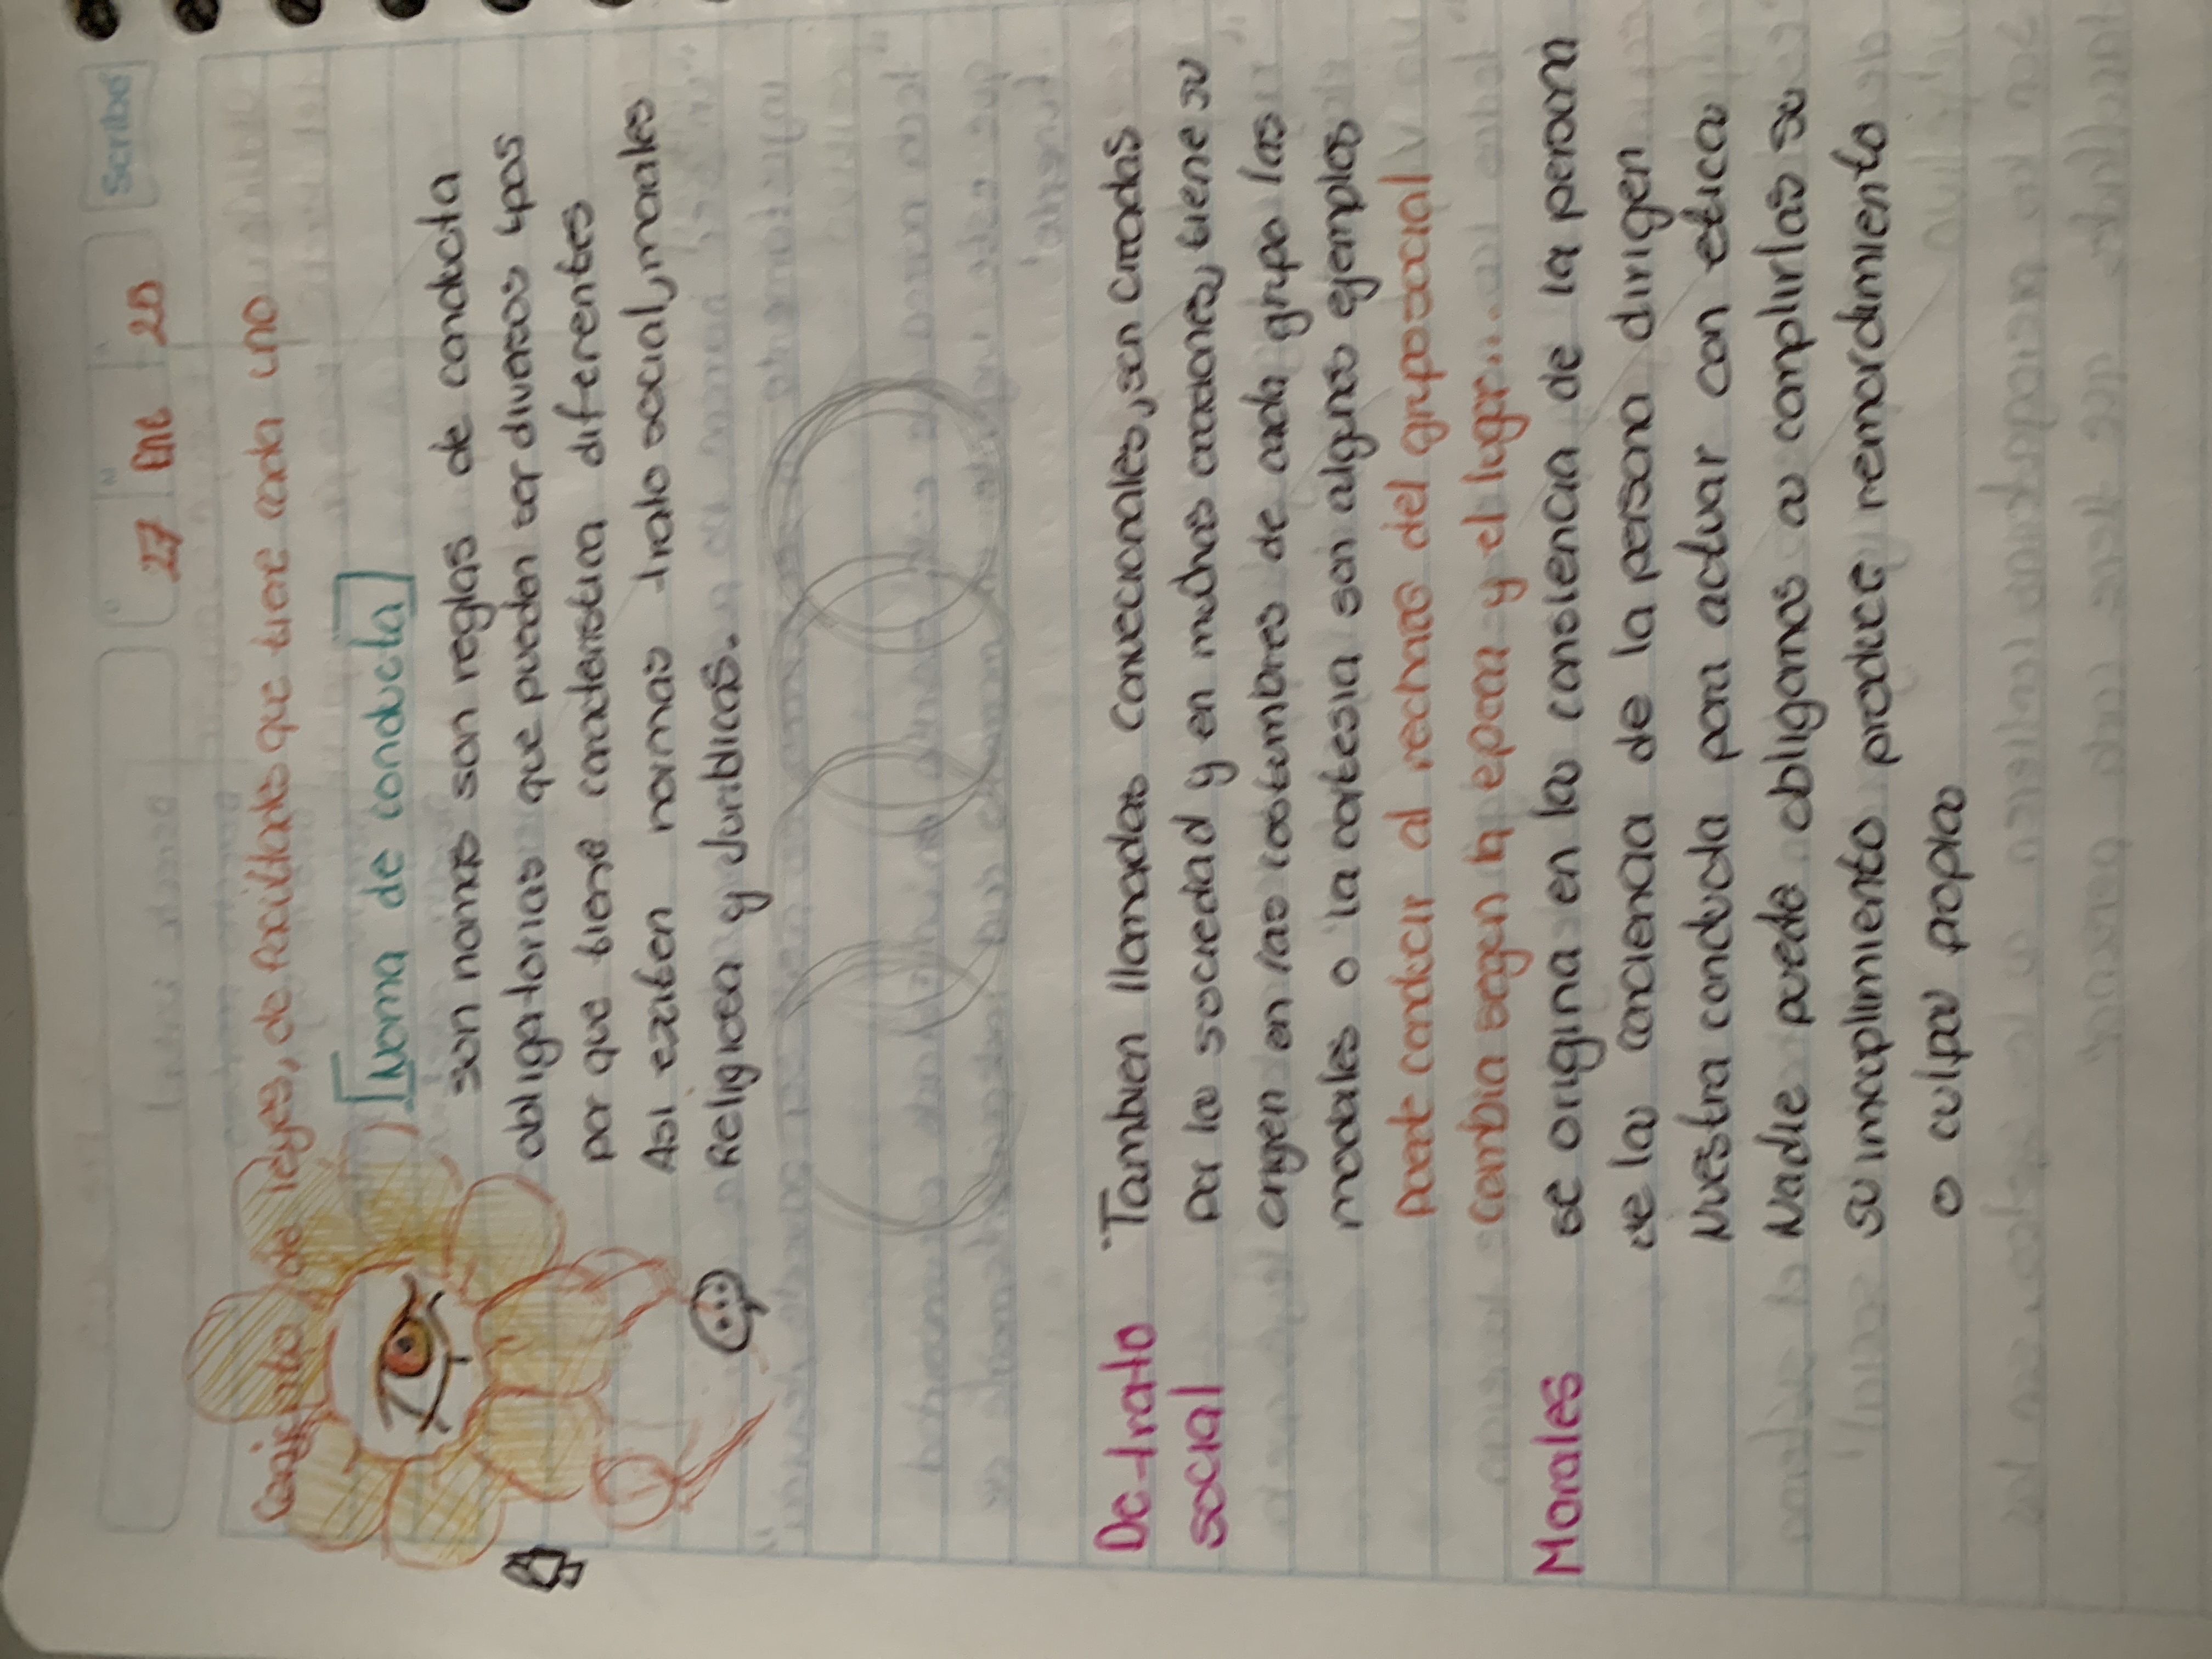 Scribe
27 Ene 20
Conjunto de leyes, de facultades que tiene cada uno
Norma de conducta
son normas son reglas de conducta
obligatorias que pueden ser diversos tipos
por que tiene caracteristica diferentes
Asi existen normas trato social, morales
Religiosa y Juridicas.
De trato social
"Tambien llamadas convecionales, son creadas
por la sociedad y en muchas ocaciones, tiene su
origen en las costumbres de cada grupo las
modales o la cortesia son algunos ejemplos
puede conducir al rechazo del grupo social
Cambia segen la epoca y el lugar...
Morales
se origina en la consiencia de la persona
de la conciencia de la persona dirigen
Nuestra conducta para actuar con etica
Nadie puede obligarnos a complirlas su
su imcuplimiento produce remordimiento
o culpa propia